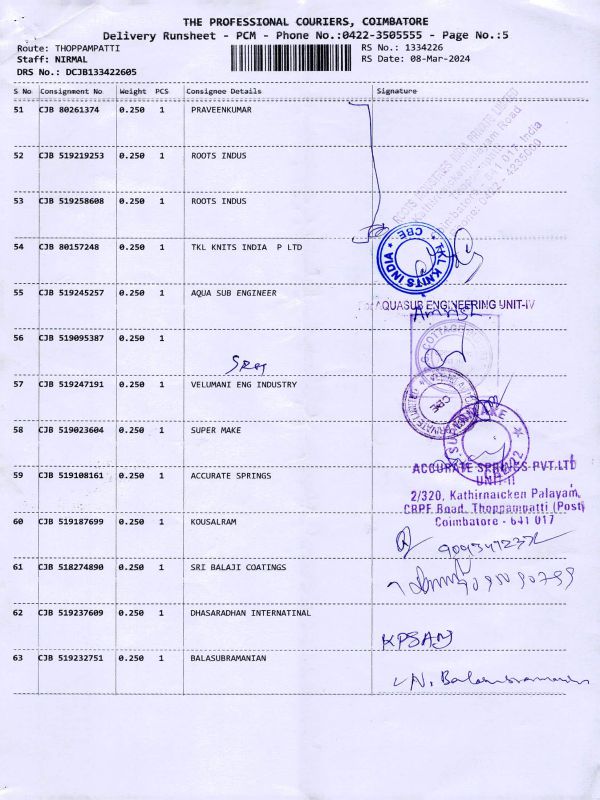 THE PROFESSIONAL COURIERS, COIMBATORE
Delivery Runsheet - PCM - Phone No.:0422-3505555 - Page No.:5
Route: THOPPAMPATTI RS No.: 1334226
Staff: NIRMAL RS Date: 08-Mar-2024
DRS No.: DCJB133422605
S No Consignment No Weight PCS Consignee Details Signature
51 CJB 80261374 0.250 1 PRAVEENKUMAR
52 CJB 519219253 0.250 1 ROOTS INDUS
53 CJB 519258608 0.250 1 ROOTS INDUS
54 CJB 80157248 0.250 1 TKL KNITS INDIA P LTD
TKL KNITS INDIA
CBE
55 CJB 519245257 0.250 1 AQUA SUB ENGINEER
AQUASUB ENGINEERING UNIT-IV
56 CJB 519095387 0.250 1
57 CJB 519247191 0.250 1 VELUMANI ENG INDUSTRY
CBE
58 CJB 519023604 0.250 1 SUPER MAKE
59 CJB 519108161 0.250 1 ACCURATE SPRINGS
ACCURATE SPRINGS PVT LTD
UNIT-II
2/320, Kathirnaicken Palayam,
CRPF Road, Thoppampatti (Post)
Coimbatore - 641 017
60 CJB 519187699 0.250 1 KOUSALRAM
61 CJB 518274890 0.250 1 SRI BALAJI COATINGS
62 CJB 519237609 0.250 1 DHASARADHAN INTERNATINAL
63 CJB 519232751 0.250 1 BALASUBRAMANIAN
N. Balasubramanian